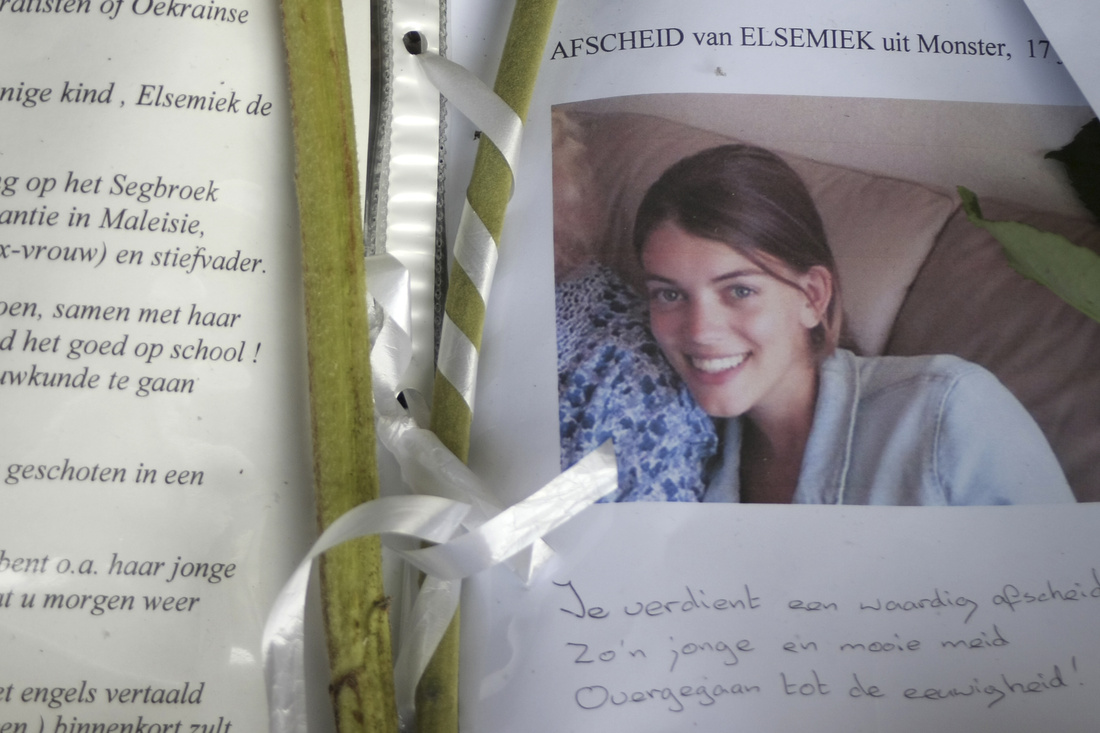 of Oekrainse
nige kind , Elsemiek de
op het Segbroek
antie in Maleisie,
x-vrouw) en stiefvader.
oen, samen met haar
d het goed op school !
uwkunde te gaan
geschoten in een
bent o.a. haar jonge
at u morgen weer
et engels vertaald
en ) binnenkort zult
AFSCHEID van ELSEMIEK uit Monster, 17
Je verdient een waardig afscheid
Zo'n jonge en mooie meid
Overgegaan tot de eeuwigheid!